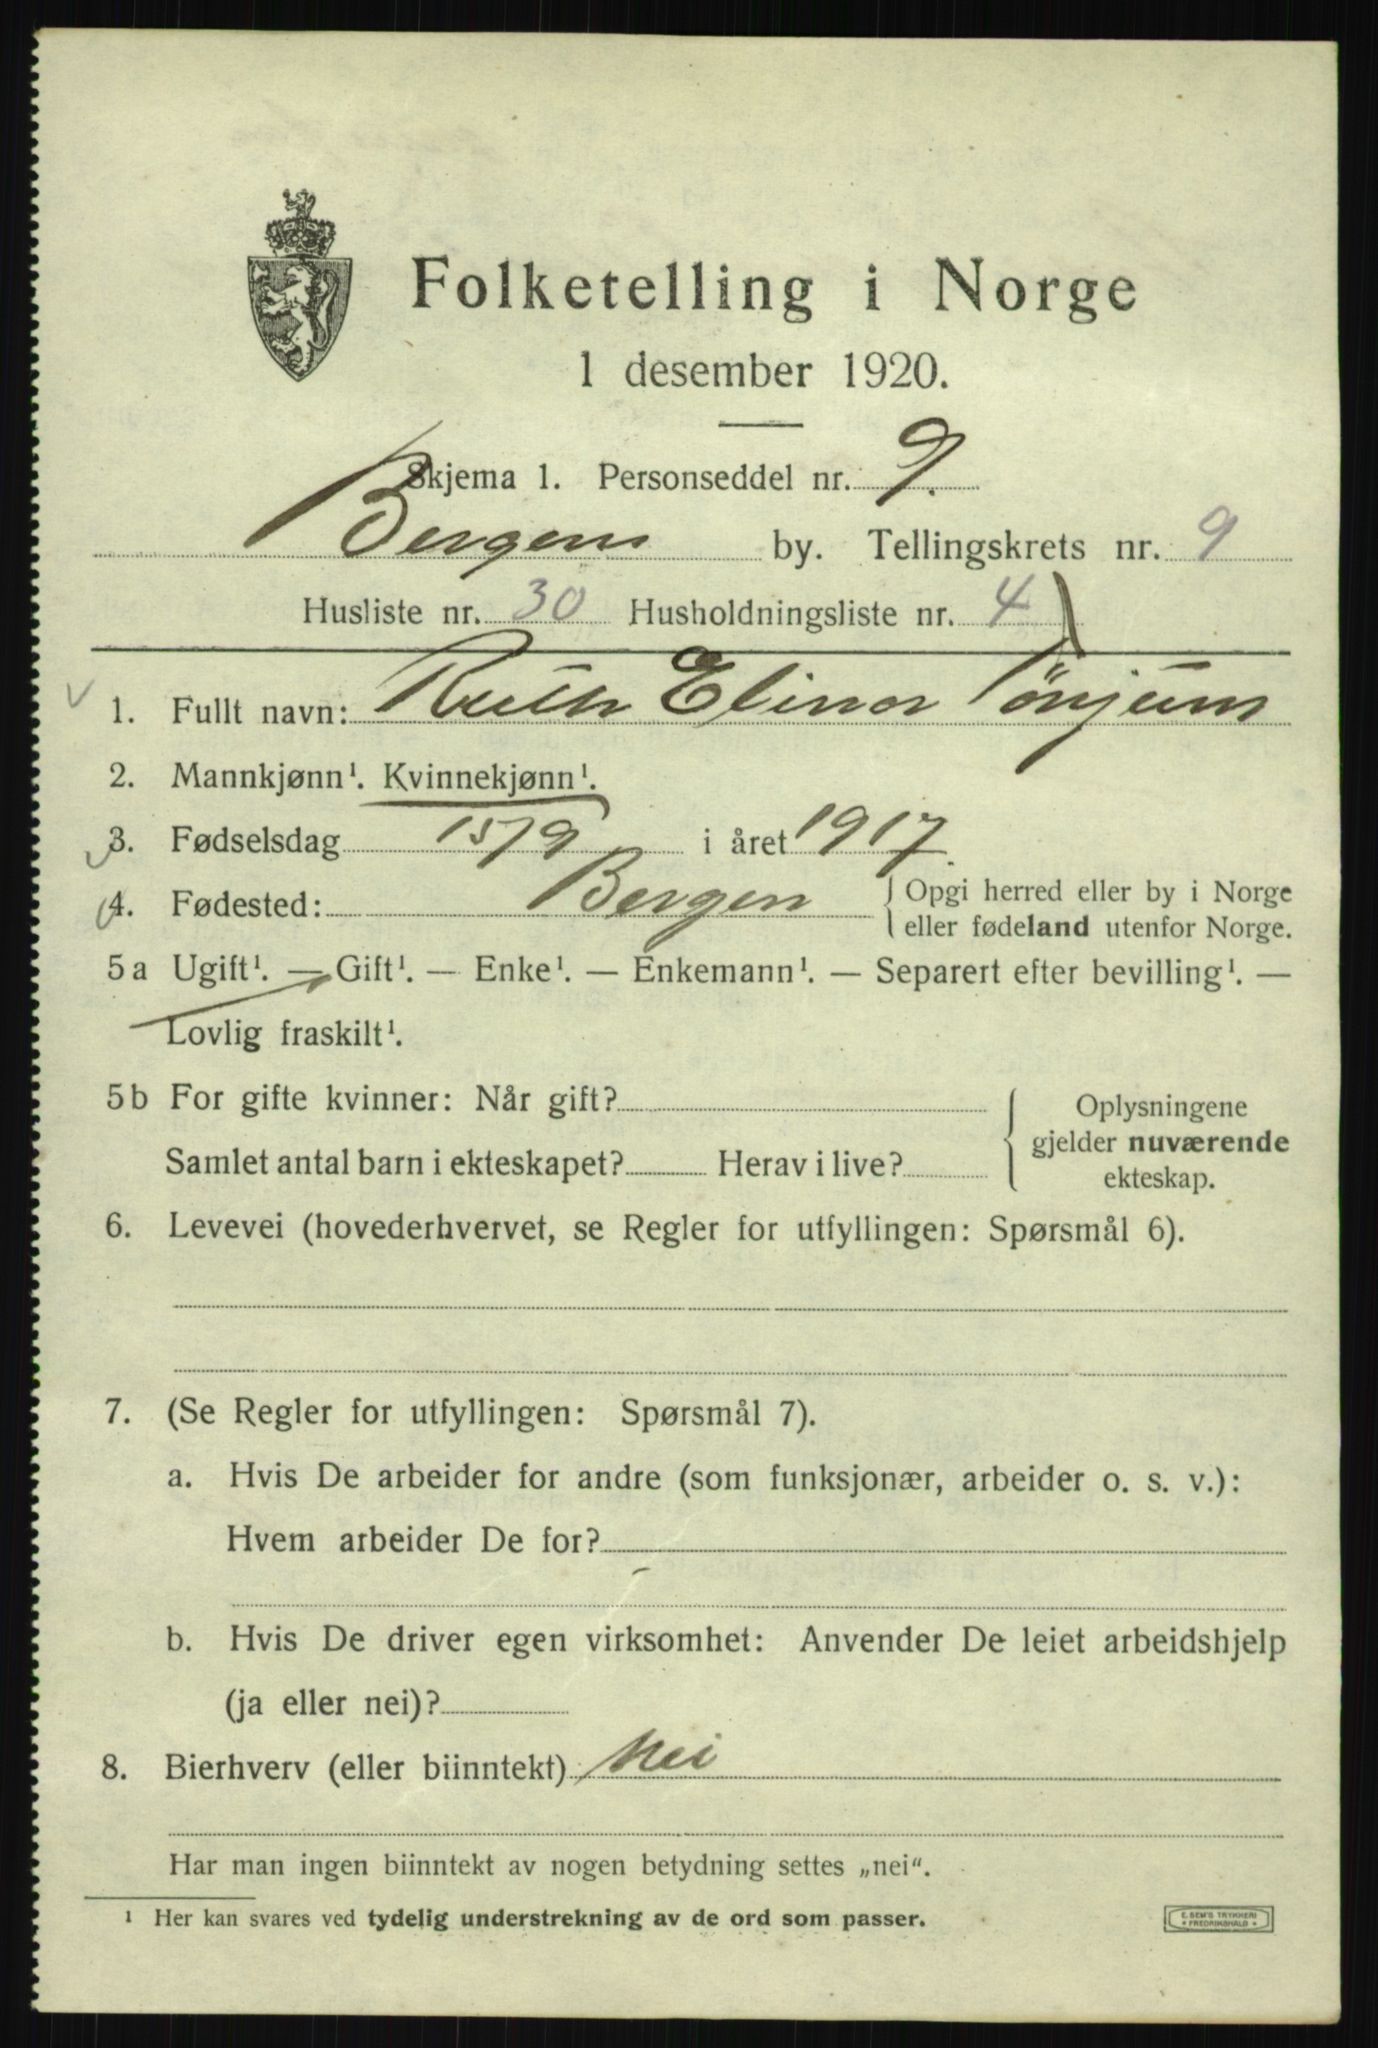 Folketelling i Norge
1 desember 1920.
Skjema 1. Personseddel nr. 9.
Bergens by. Tellingskrets nr. 9
Husliste nr. 30 Husholdningsliste nr. 4
1. Fullt navn: Ruth Elinor Tönjum
2. Mannkjønn¹. Kvinnekjønn¹.
3. Fødselsdag 15/9 i året 1917.
4. Fødested: Bergen { Opgi herred eller by i Norge
eller fødeland utenfor Norge.
5a Ugift¹. — Gift¹. — Enke¹. — Enkemann¹. — Separert efter bevilling¹. —
Lovlig fraskilt¹.
5b For gifte kvinner: Når gift?
Samlet antal barn i ekteskapet? Herav i live?
Oplysningene
gjelder nuværende
ekteskap.
6. Levevei (hovederhvervet, se Regler for utfyllingen: Spørsmål 6).
7. (Se Regler for utfyllingen: Spørsmål 7).
a. Hvis De arbeider for andre (som funksjonær, arbeider o. s. v.):
Hvem arbeider De for?
b. Hvis De driver egen virksomhet: Anvender De leiet arbeidshjelp
(ja eller nei)?
8. Bierhverv (eller biinntekt) Nei
Har man ingen biinntekt av nogen betydning settes „nei“.
¹ Her kan svares ved tydelig understrekning av de ord som passer.
E. SEM'S TRYKKERI
• FREDRIKSHALD •